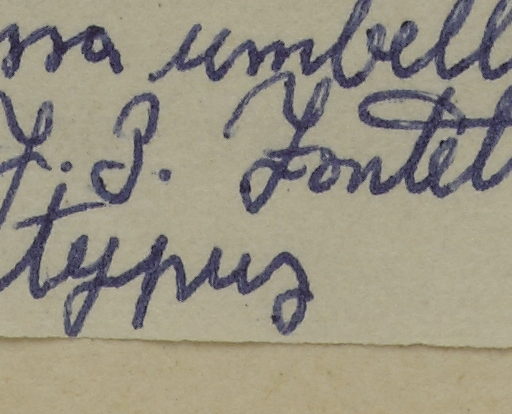 ssa umbell
J. P. Fontel
typus